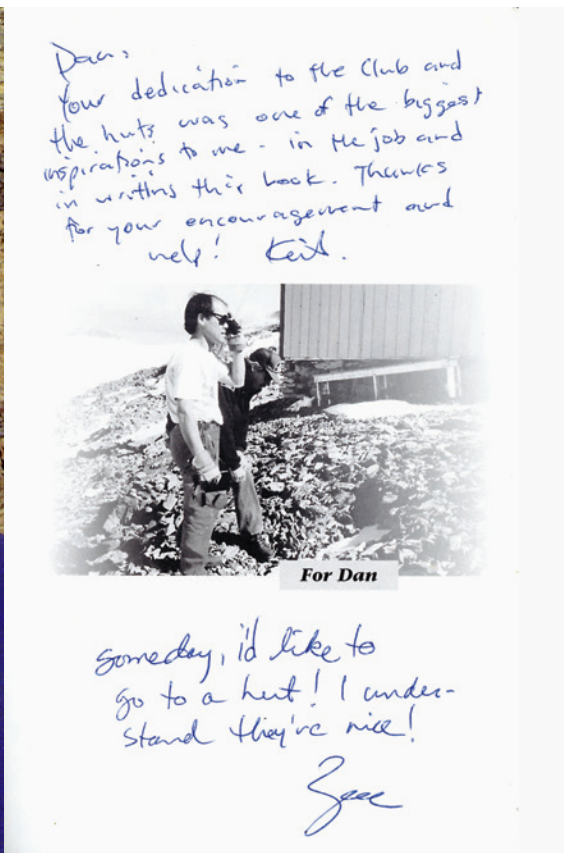 Dan,
Your dedication to the Club and
the huts was one of the biggest
inspirations to me - in the job and
in writing this book. Thanks
for your encouragement and
help! Keith.
For Dan
someday, i'd like to
go to a hut! I under-
stand they're nice!